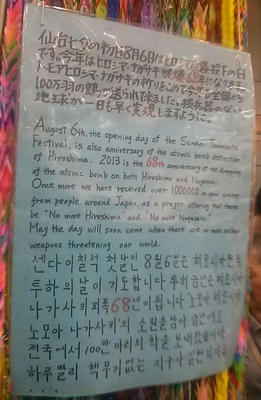 仙台七夕の初日8月6日はヒロシマ原爆投下の日
です。今年はヒロシマ・ナガサキ被爆68年になります
ノーモアヒロシマ・ナガサキの祈りをこめて今年も全国から
100万羽の鶴が送られてきました。核兵器のない
地球が一日も早く実現しますように。
August 6th, the opening day of the Sendai Tanabata
Festival, is also anniversary of the atomic bomb destruction
of Hiroshima. 2013 is the 68th anniversary of the dropping
of the atomic bomb on both Hiroshima and Nagasaki.
Once more we have received over 1000000 cranes
from people around Japan, as a prayer ofering that there
be "No more Hiroshima" and "No more Nagasaki".
May the day will soon come when there are no more nuclear
weapons threatening our world.
센다이칠석 첫날인 8월6일은 히로시마 원폭
투하의 날이 기도합니다. 히로시마
나가사키 피폭 68년이 됩니다 노모아 히로시마
노모아 나가사키의 소원을 담아 금년에도
전국에서 100만 마리의 학을 보내왔습니다
하루 빨리 핵무기없는 지구가